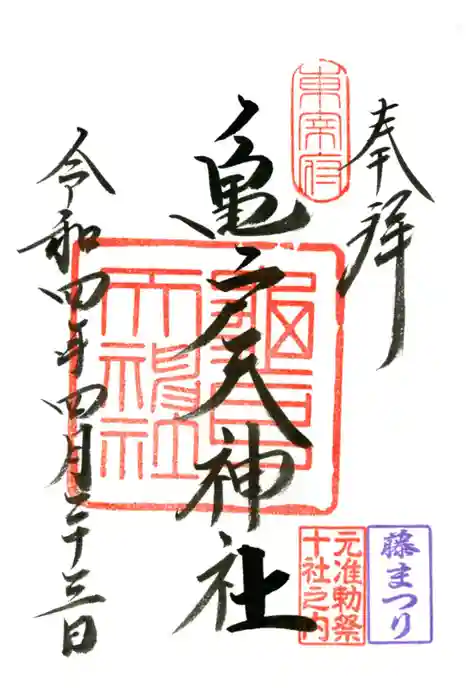 奉拝
東宰府
亀戸天神社
亀戸天神社
元准勅祭
十社之内
藤まつり
令和四年四月二十三日